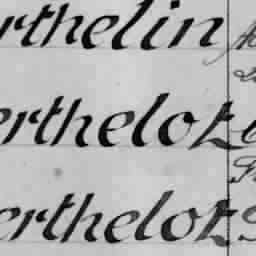 rthelin
erthelot
erthelot